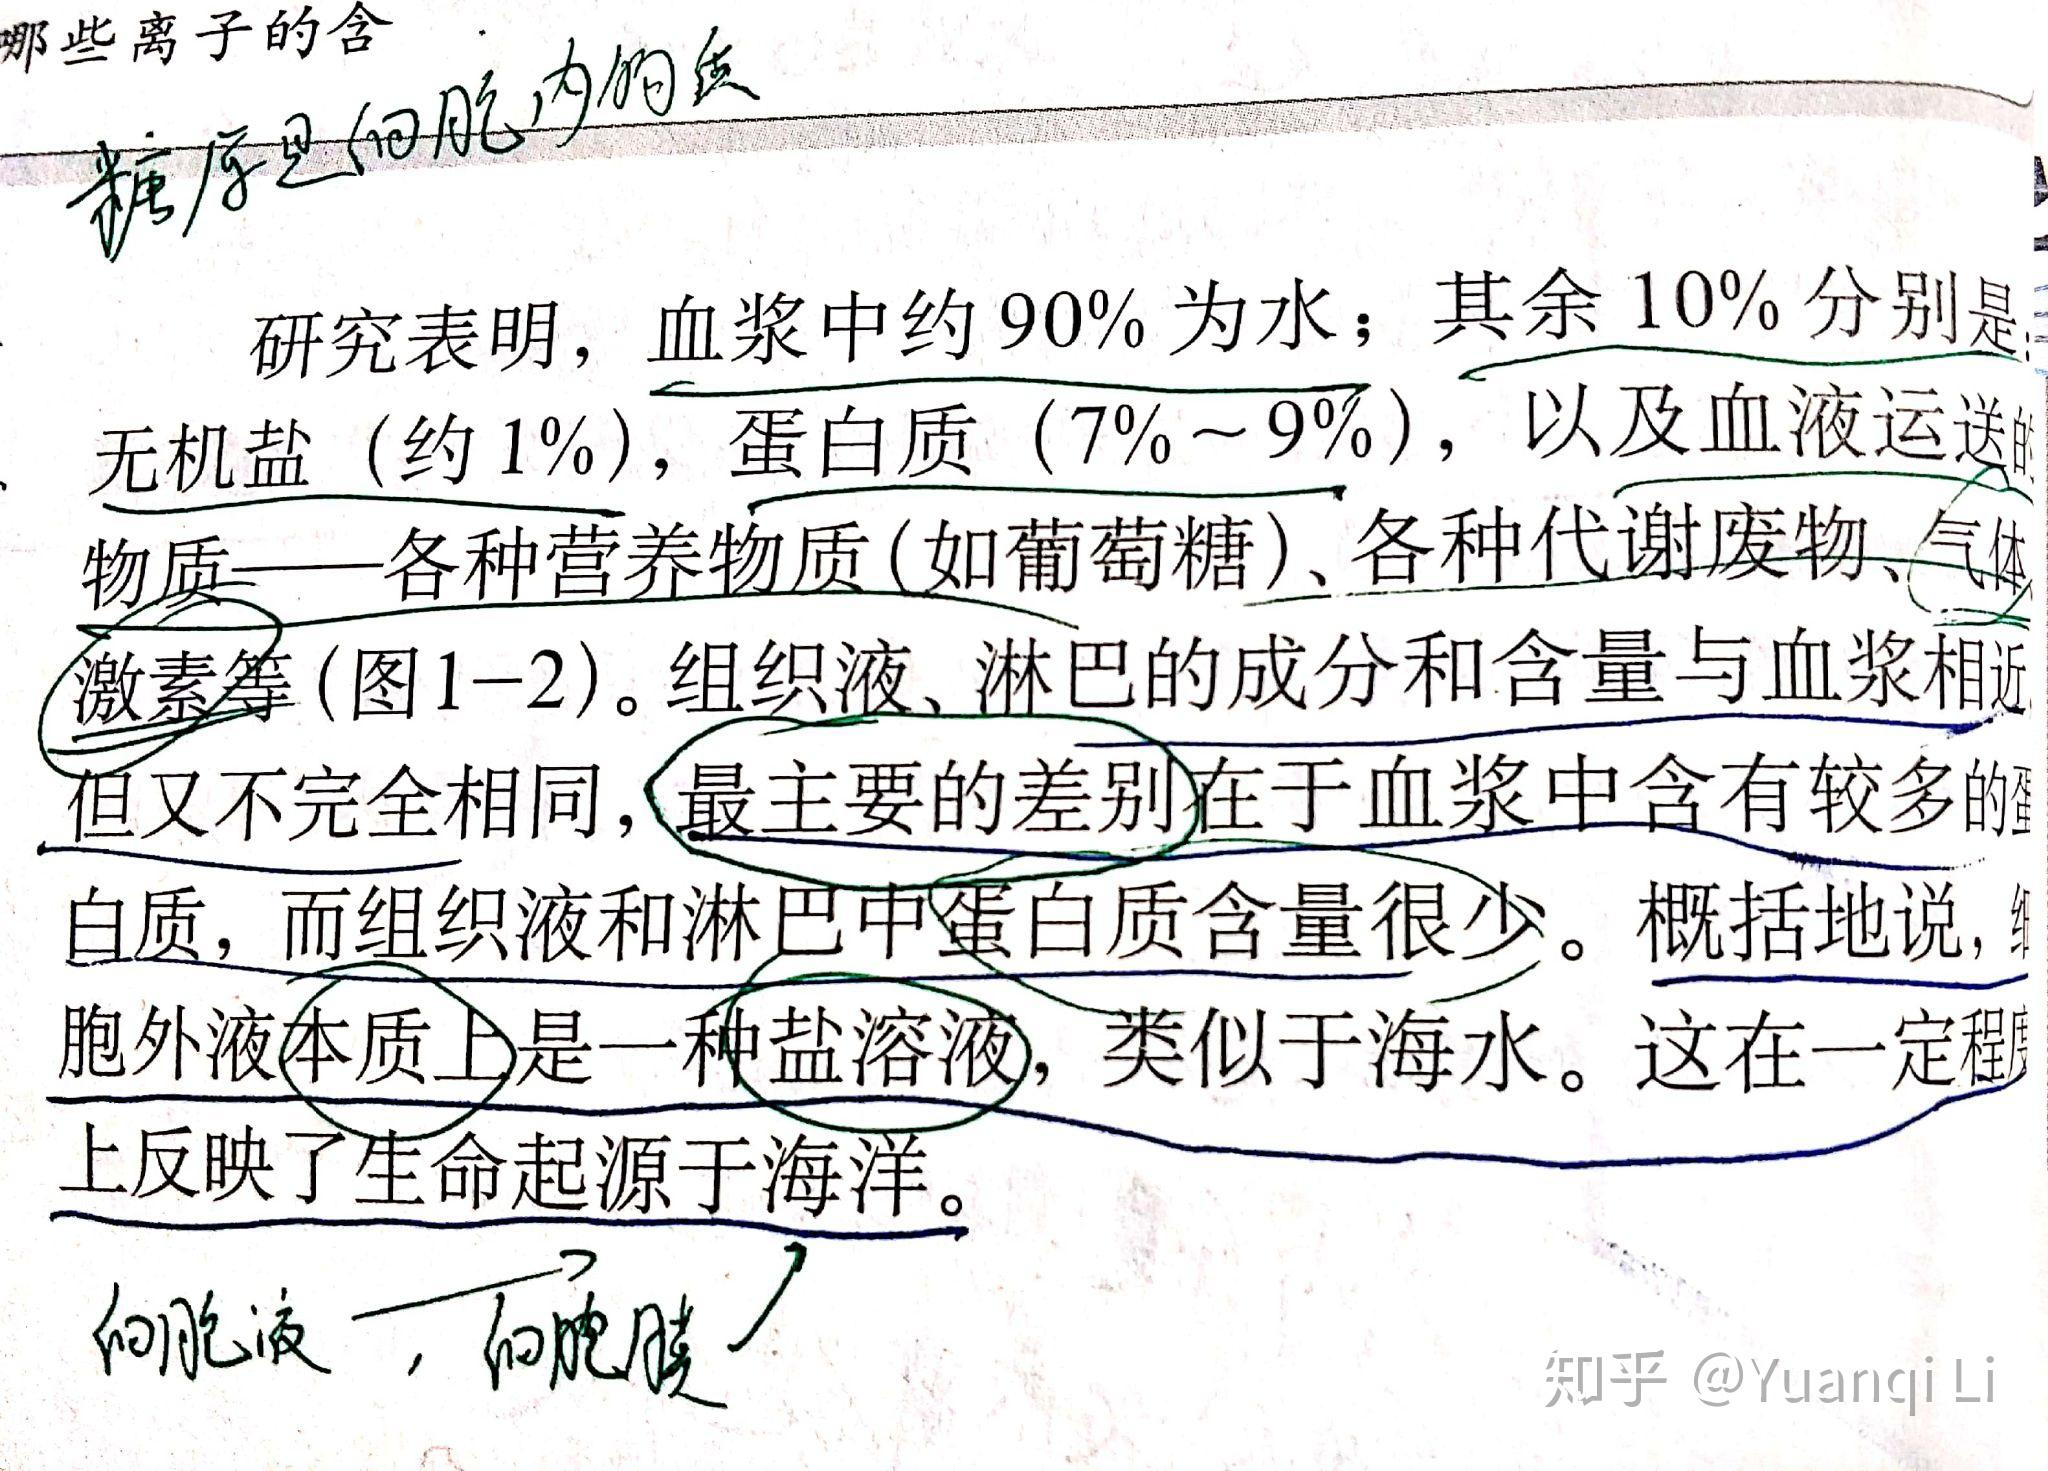 哪些离子的含
糖原是细胞内的
研究表明，血浆中约90%为水；其余10%分别是：
无机盐（约1%），蛋白质（7%~9%），以及血液运送的
物质——各种营养物质（如葡萄糖）、各种代谢废物、气体、
激素等（图1-2）。组织液、淋巴的成分和含量与血浆相近，
但又不完全相同，最主要的差别在于血浆中含有较多的蛋
白质，而组织液和淋巴中蛋白质含量很少。概括地说，细
胞外液本质上是一种盐溶液，类似于海水。这在一定程度
上反映了生命起源于海洋。
细胞液，细胞膜
知乎 @Yuanqi Li